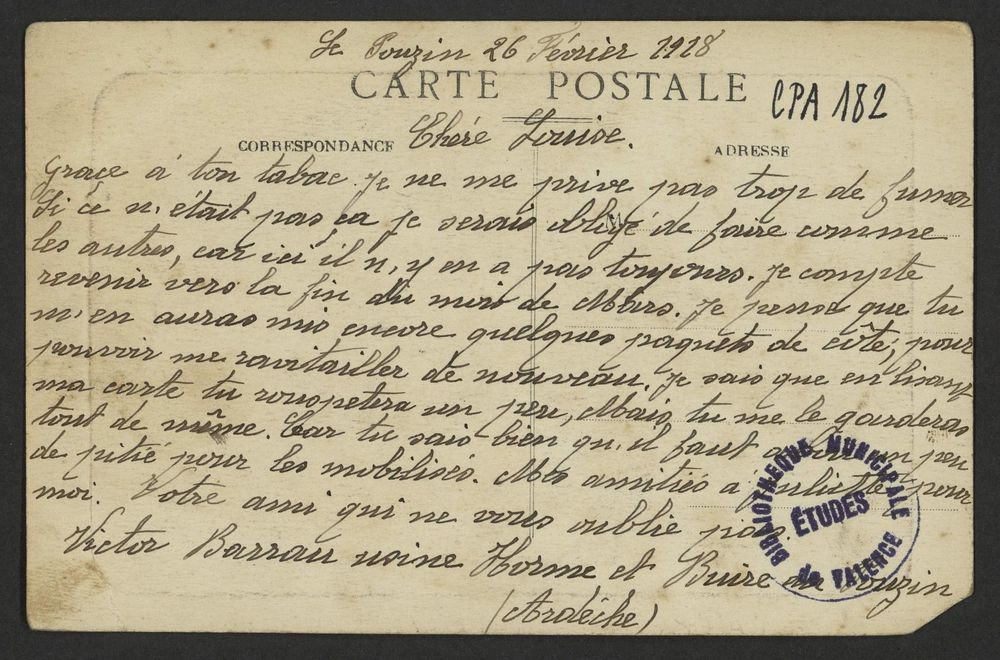 Le Pouzin 26 Février 1918
CARTE POSTALE
CPA 182
Chére Louise.
CORRESPONDANCE
ADRESSE
M
Grace á ton tabac, je ne me prive pas trop de fumer
Si ce n'était pas ça je serais obligé de faire comme
les autres, car ici il n'y en a pas toujours. Je compte
revenir vers la fin du mois de Mars. Je pense que tu
m'en auras mis encore quelques paquets de côté, pour
pouvoir me ravitailler de nouveau. Je sais que en lisant
ma carte tu rouspetera un peu, Mais tu me le garderas
tout de même. Car tu sais bien qu'il faut avoir un peu
de pitié pour les mobilisés. Mes amitiés á Juliette pour
moi. Votre ami qui ne vous oublie pas.
Victor Barrau usine Horme et Buire au Pouzin
(Ardéche)
BIBLIOTHEQUE MUNICIPALE
ÉTUDES
de VALENCE